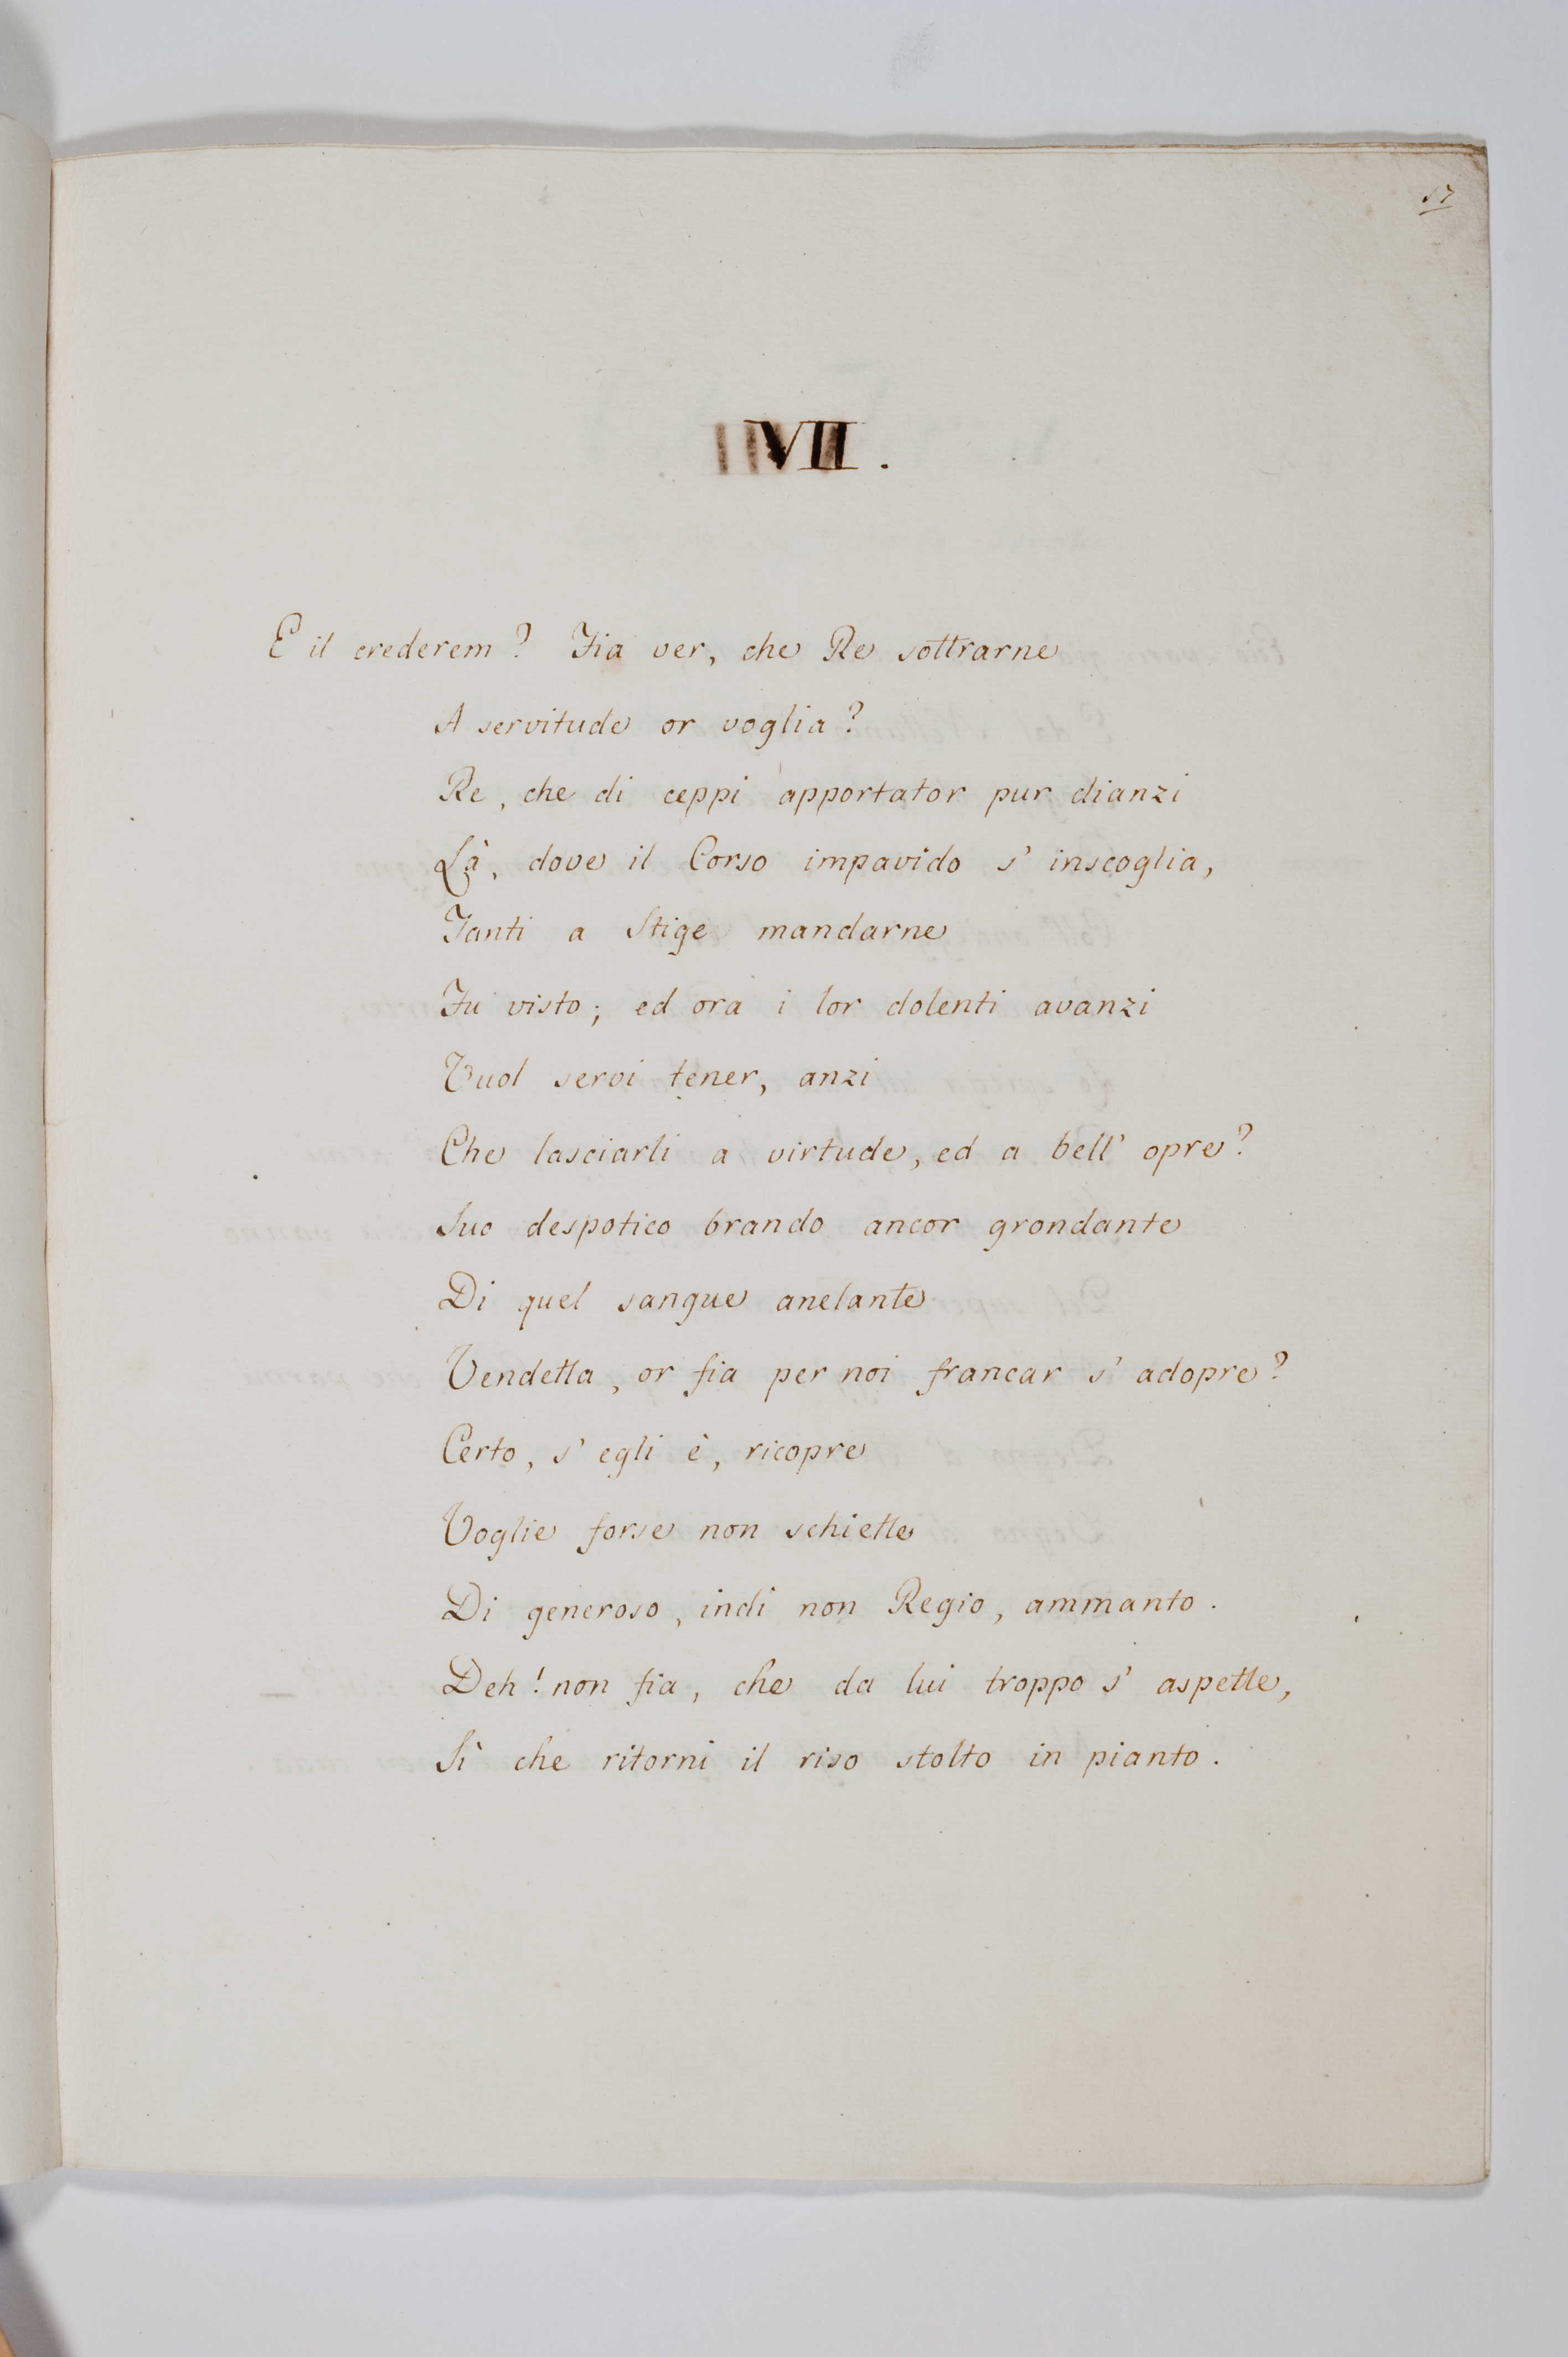 17
VII.
E il crederem? Fia ver, che Re sottrarne
A servitude or voglia?
Re, che di ceppi apportator pur dianzi
Là, dove il Corso impavido s' inscoglia,
Tanti a Stige mandarne
Fu visto; ed ora i lor dolenti avanzi
Vuol servi tener, anzi
Che lasciarli a virtude, ed a bell' opre?
Suo despotico brando ancor grondante
Di quel sangue anelante
Vendetta, or fia per noi francar s' adopre?
Certo, s' egli è, ricopre
Voglie forse non schiette
Di generoso, indi non Regio, ammanto.
Deh! non fia, che da lui troppo s' aspette,
Sì che ritorni il riso stolto in pianto.